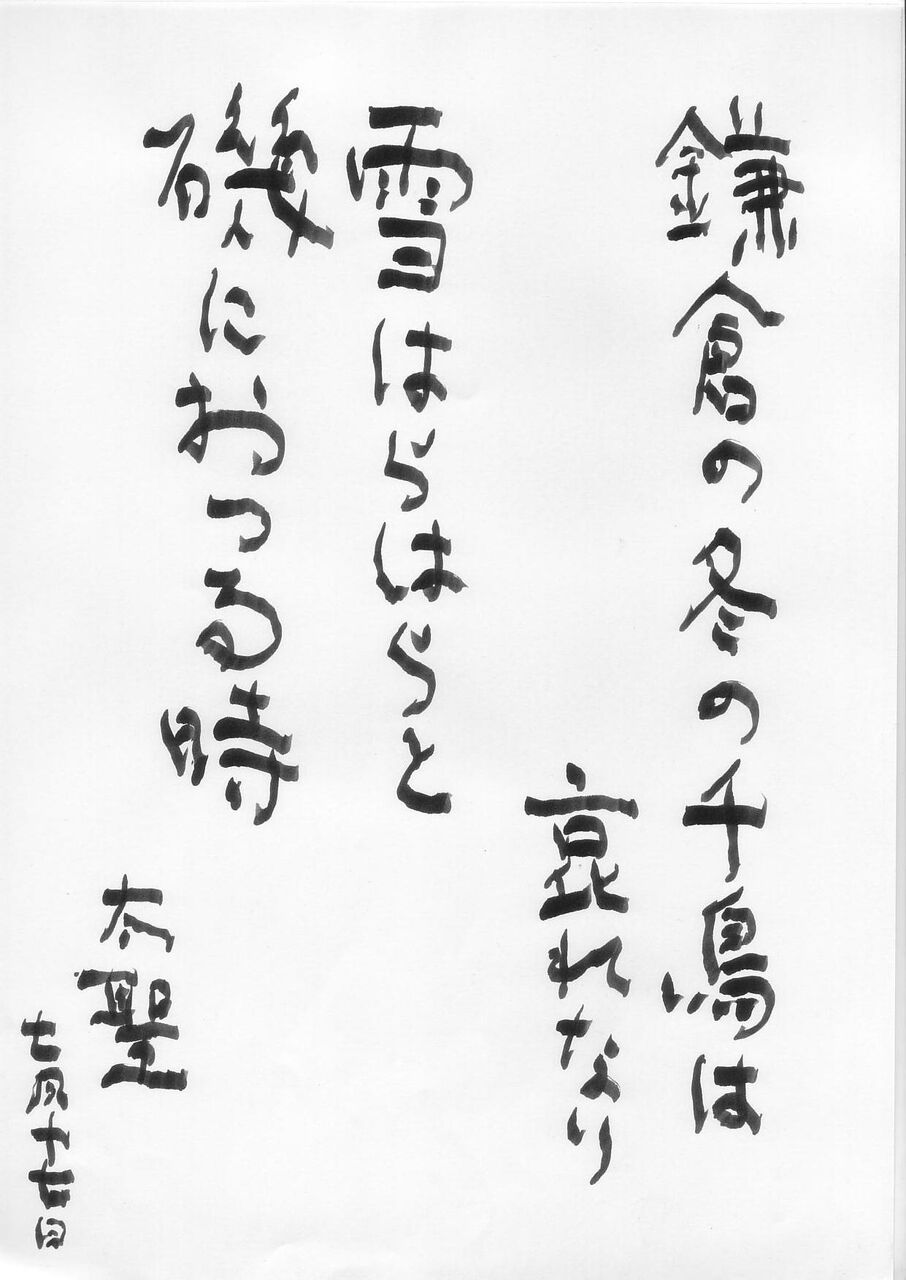 鎌倉の冬の千鳥は
哀れなり
雪はらはらと
磯におつる時
太聖
七月十七日